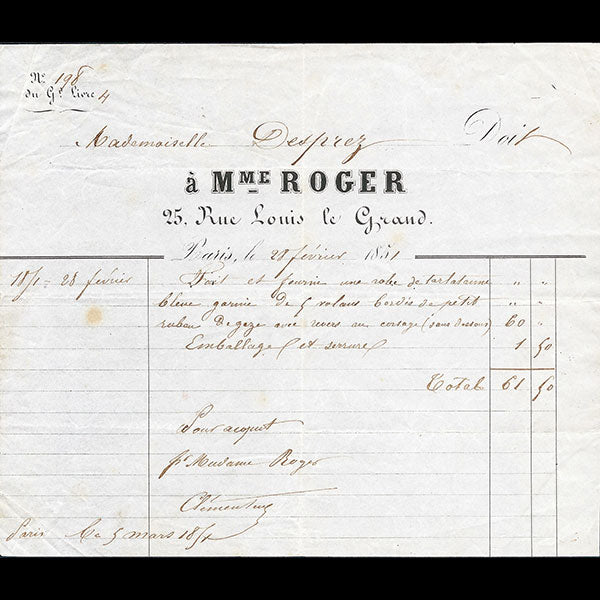 No. 198
du Gd. Livre 4
Mademoiselle Desprez Doit
à MME ROGER
25, Rue Louis le Grand.
Paris, le 28 février 1851
1851 = 28 février Fait et fournie une robe de tarlatanne " "
bleue garnie de 5 volans bordés de petit " "
ruban de gaze avec revers au corsage (sans dessous) 60 "
Emballage (et serrure) 1 50
Total 61 50
Pour acquit
pr Madame Roger
Clémentine
Paris le 5 mars 1851